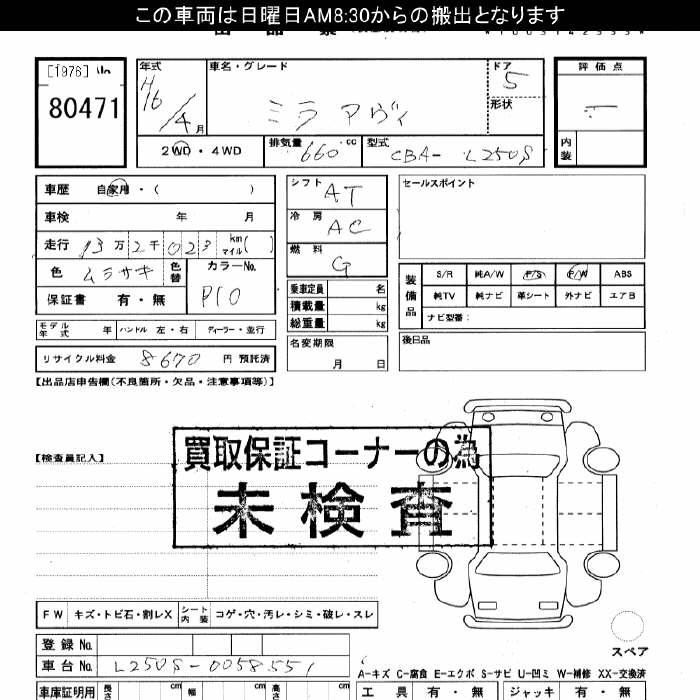 この車両は日曜日AM8:30からの搬出となります
[1976]
80471
年式
H16/4月
車名・グレード
ミラ アヴィ
ドア
5
形状
評価点
内装
2WD・4WD
排気量 660 cc
型式 CBA-L250S
車歴 自家用・( )
車検 年 月
走行 13万2千023 km マイル( )
色 ムラサキ 色替
カラーNo. P10
保証書 有・無
シフト AT
冷房 AC
燃料 G
乗車定員 名
積載量 kg
総重量 kg
セールスポイント
装備品
S/R 純A/W P/S P/W ABS
純TV 純ナビ 革シート 外ナビ エアB
ナビ型番:
モデル年式 年 ハンドル 左・右 ディーラー・並行
名変期限 月 日
後日品
リサイクル料金 8670 円 預託済
【出品店申告欄(不良箇所・欠品・注意事項等)】
【検査員記入】
買取保証コーナーの為
未検査
FW キズ・トビ石・割レX シート内装 コゲ・穴・汚レ・シミ・破レ・スレ
登録No.
車台No. L250S-0058551
スペア
A-キズ C-腐食 E-エクボ S-サビ U-凹ミ W-補修 XX-交換済
車庫証明用 長さ cm 幅 cm 高さ cm
工具 有・無 ジャッキ 有・無